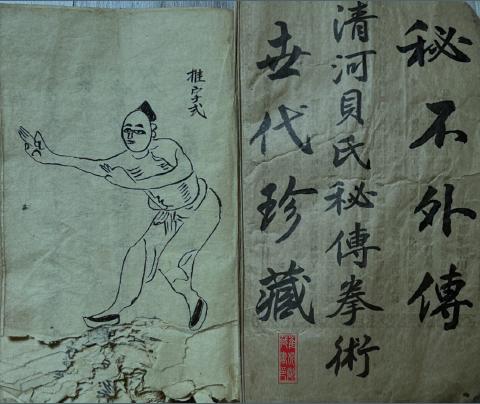 秘不外傳
清河貝氏秘傳拳術
世代珍藏
推字式